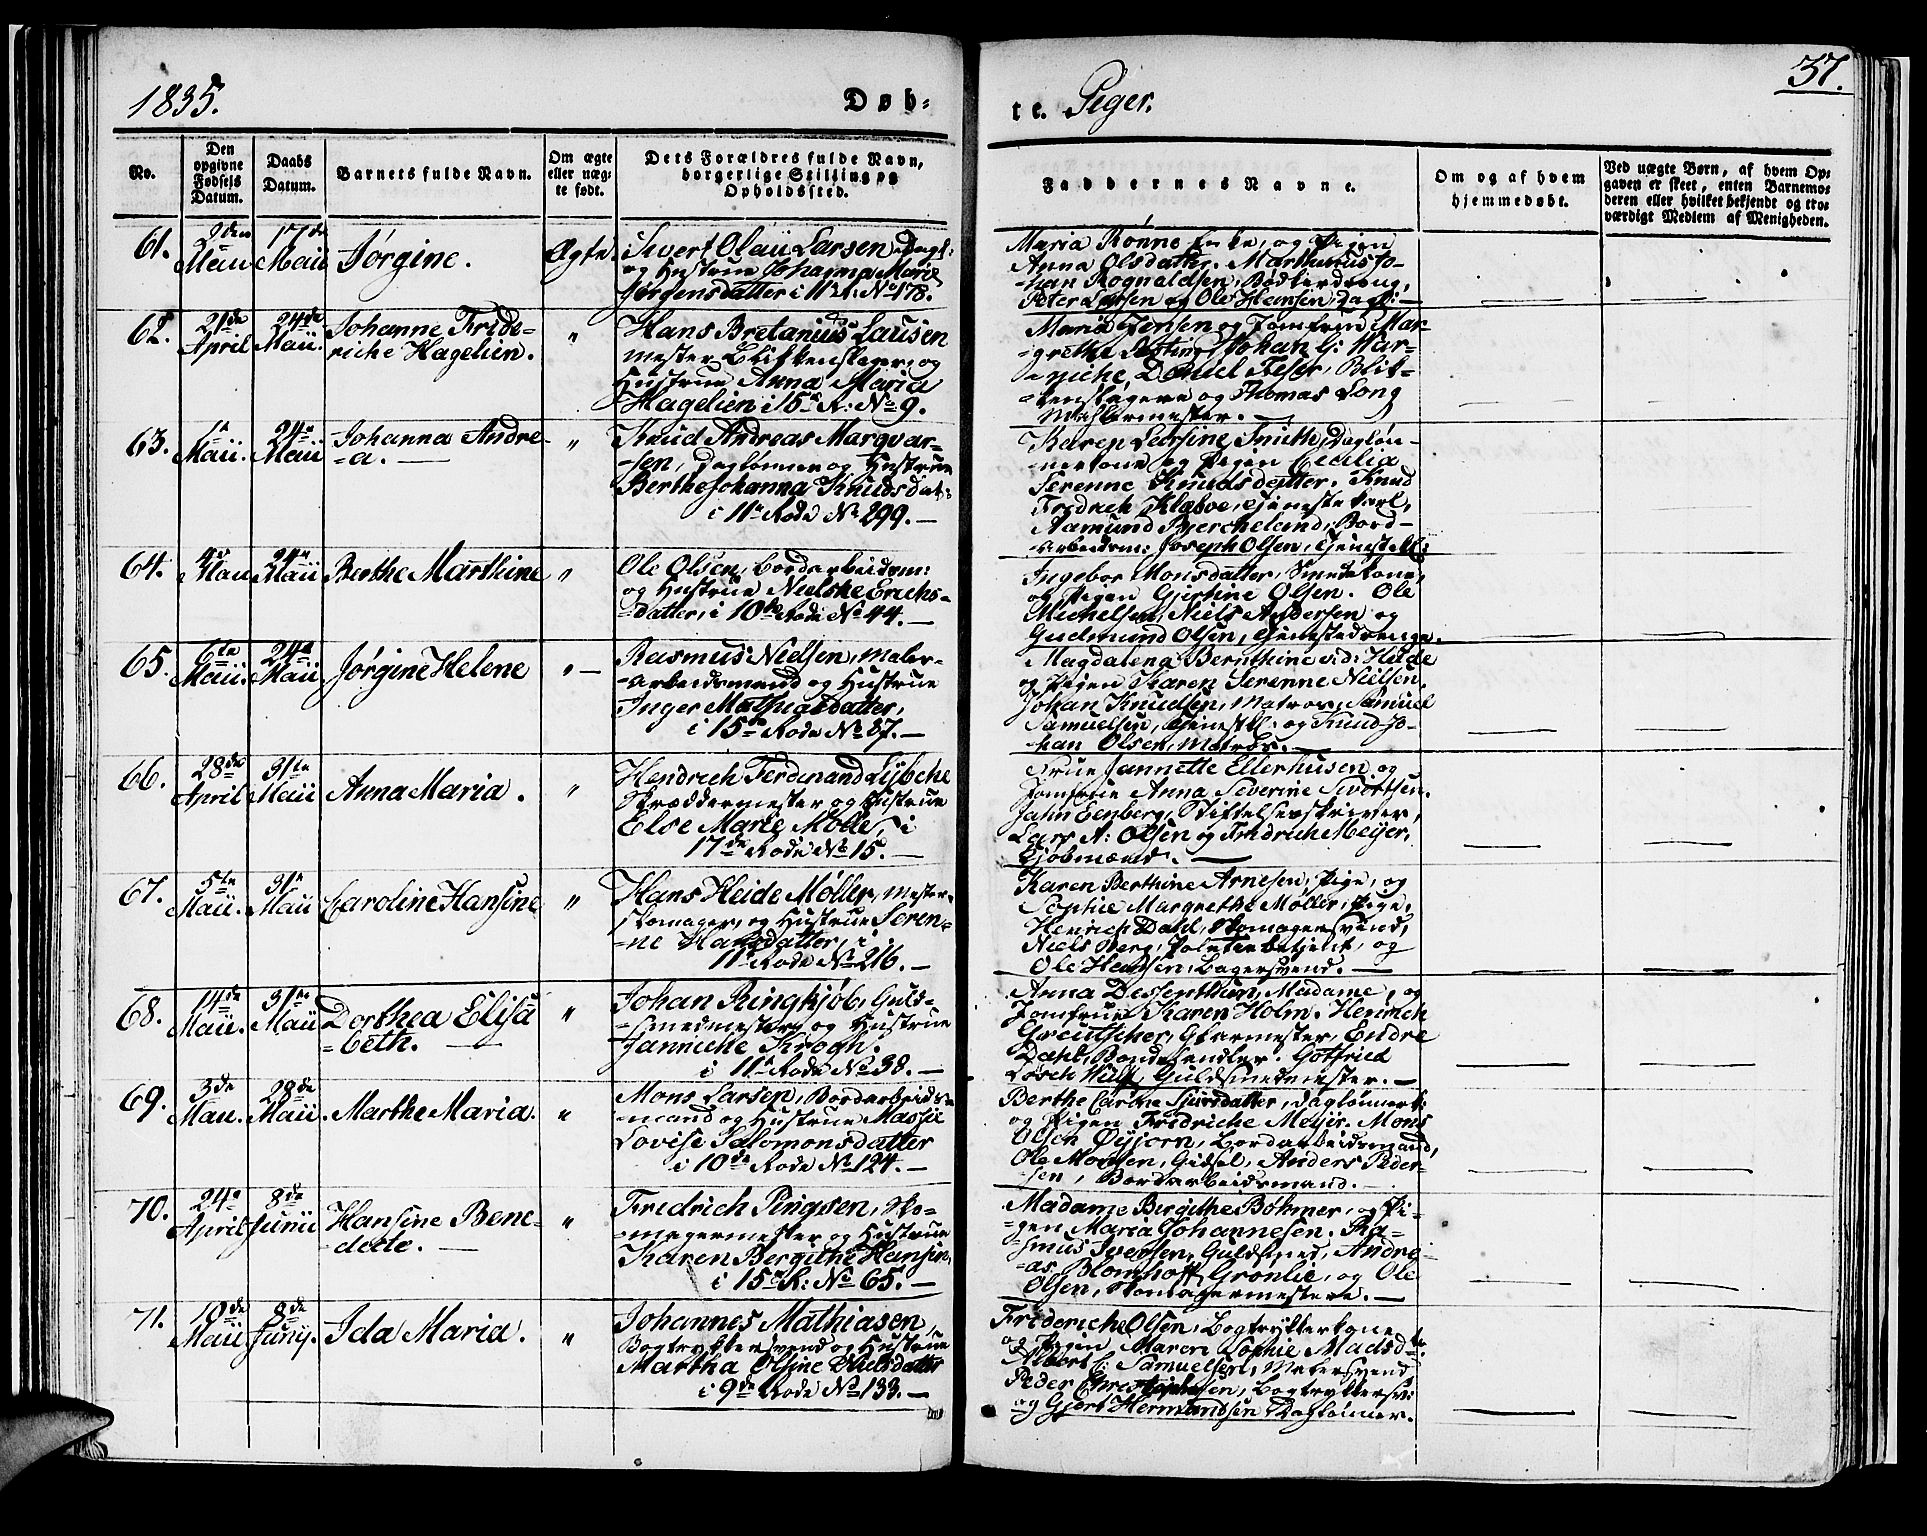 1835.
Døb-
te. Piger.
37.
No.
Den opgivne Fødsels Datum.
Daabs Datum.
Barnets fulde Navn.
Om ægte eller uæg- te født.
Dets Forældres fulde Navn, borgerlige Stilling og Opholdssted.
Faddernes Navne.
Om og af hvem hjemmedøbt.
Ved uægte Børn, af hvem Op-
gaven er skeet, enten Barnemo-
deren eller hvilket bekjendt og tro-
værdigt Medlem af Menigheden.
61. 2den Maii 17de Maii Jørgine. Ægte.
Sivert Olaii Larsen Dagl:
og Hustrue Johanna Marie
Jørgensdatter i 11te R: No 178.
Maria Rønne Enke, og Pigen
Anna Olsdatter. Marthinus Jo-
-han Rognaldsen, Bødkerdreng,
Peter Larsen og Ole Hansen Dagl: —
62. 21de April 24de Maii. Johanne Fride-
riche Hagelien. "
Hans Bretanius Lausen
mester Blikkenslager, og
Hustrue Anna Maria
Hagelien i 15de R: No 9.
Maria Jensen og Jomfrue Mar-
-grethe Johan G: War-
-niche Daniel Blik-
-kenslagere og Thomas Long
Mahlermester. —
63. 1te Maii. 24de Maii Johanna Andre-
-a. — "
Knud Andreas Marqvar-
-sen, Daglønner og Hustrue
Berthe Johanna Knudsdat:
i 11te Rode No 299. —
Karen Larsine Smith, Dagløn-
-nerkone og Pigen Cecilia
Serenne Knudsdatter. Knud
Fredrich Klabve, tjeneste karl,
Aamund Bjercheland, Bord-
-arbeidsm: Joseph Olsen, tjenestek:
64. 4de Maii 24de Maii Berthe Marthine "
Ole Olsen, bordarbeidsm:
og Hustrue Nielske Erichs-
-datter, i 10de Rode No 44. —
Ingebor Monsdatter, Smedekone,
og Pigen Gjertine Olsen. Ole
Michelsen, Niels Andersen og
Gudmund Olsen, tjenestedrenge.
65. 6te Maii. 24de Maii. Jørgine Helene " —
Rasmus Nielsen, Maler-
-arbeidsmand og Hustrue
Inger Mathiasdatter,
i 15de Rode No 87. —
Magdalena Bernthine vid: Heide
og Pigen Karen Serenne Nielsen.
Johan Knudsen, Matros, Samuel
Samuelsen, tjenestk: og Knud Jo-
-han Olsen, Matros. —
66. 28de April 31te Maii Anna Maria. "
Hendrich Ferdinand Lybche
Skræddermester og Hustrue
Else Marie Mode, i
17de Rode No 15. —
Frue Jannette Ellerhusen og
Jomfrue Anna Severine Sivertsen.
Jahn Eenberg, Stiftelseskriver,
Lars A: Olsen og Fredrich Meyer,
Kjøbmænd. —
67. 5te Maii. 31te Maii Caroline Hansine "
Hans Heide Møller, mester-
skomager, og Hustrue Seren-
-ne Hansdatter, i
11te Rode No 216. —
Karen Berthine Arnesen, Pige, og
Sophie Margrethe Møller, Pige,
Henrich Dahl, Skomagersvend,
Niels Berg, Politiebetjent, og
Ole Hansen, bagersvend. —
68. 14de Maii. 31te Maii Dorthea Elisa
-beth. — "
Johan Ringkjøb, Guld-
-smedmester, og Hustrue
Janniche Krogh.
i 11te Rode No 38. —
Anna Dessenthun, Madame, og
Jomfrue Karen Holm. Henrich
Greutscher, Glarmester, Endre
Dahl, Bondehandler. Gotfried
Losch Wulf, Guldsmedmester. —
69. 3de Maii. 28de Maii. Marthe Maria. "
Mons Larsen, Bordarbeids-
-mand og Hustrue Massie
Lovise Salomonsdatter
i 10de Rode No 124. —
Berthe Cathe Siursdatter, Daglønnerk:
og Pigen Fredriche Meyer. Mons
Olsen Øyjorn, Bordarbeidsmand,
Ole Monsen, Gidsel, Anders Peder-
-sen, Bordarbeidsmand. —
70. 24de April 8de Junii Hansine Bene-
-decte. — "
Fredrich Pingsen, Sko-
-magermester og Hustrue
Karen Bergithe Hansen,
i 15de R: No 65. —
Madame Bergithe Bøhmer, og Pi-
-gen Maria Johannesen. Ra-
-smus Iversen, Guldsmed, Andre-
-as Blomhoff Grønlie, og Ole
Olsen, Skomagermestere. —
71. 10de Maii 8de Juny. Ida Maria. "
Johannes Mathiasen,
Bogtrykkersvend og Hustrue
Martha Olsine Nielsdatter
i 9de Rode No 133. —
Friderich Olsen, Bogtrykkerkone
og Pigen Maren Sophie Madsdtr.
Albert C: Samuelsen, Malersvend
Peder Christophersen, Bogtrykkersv:
og Gjert Hermandsen Daglønner.